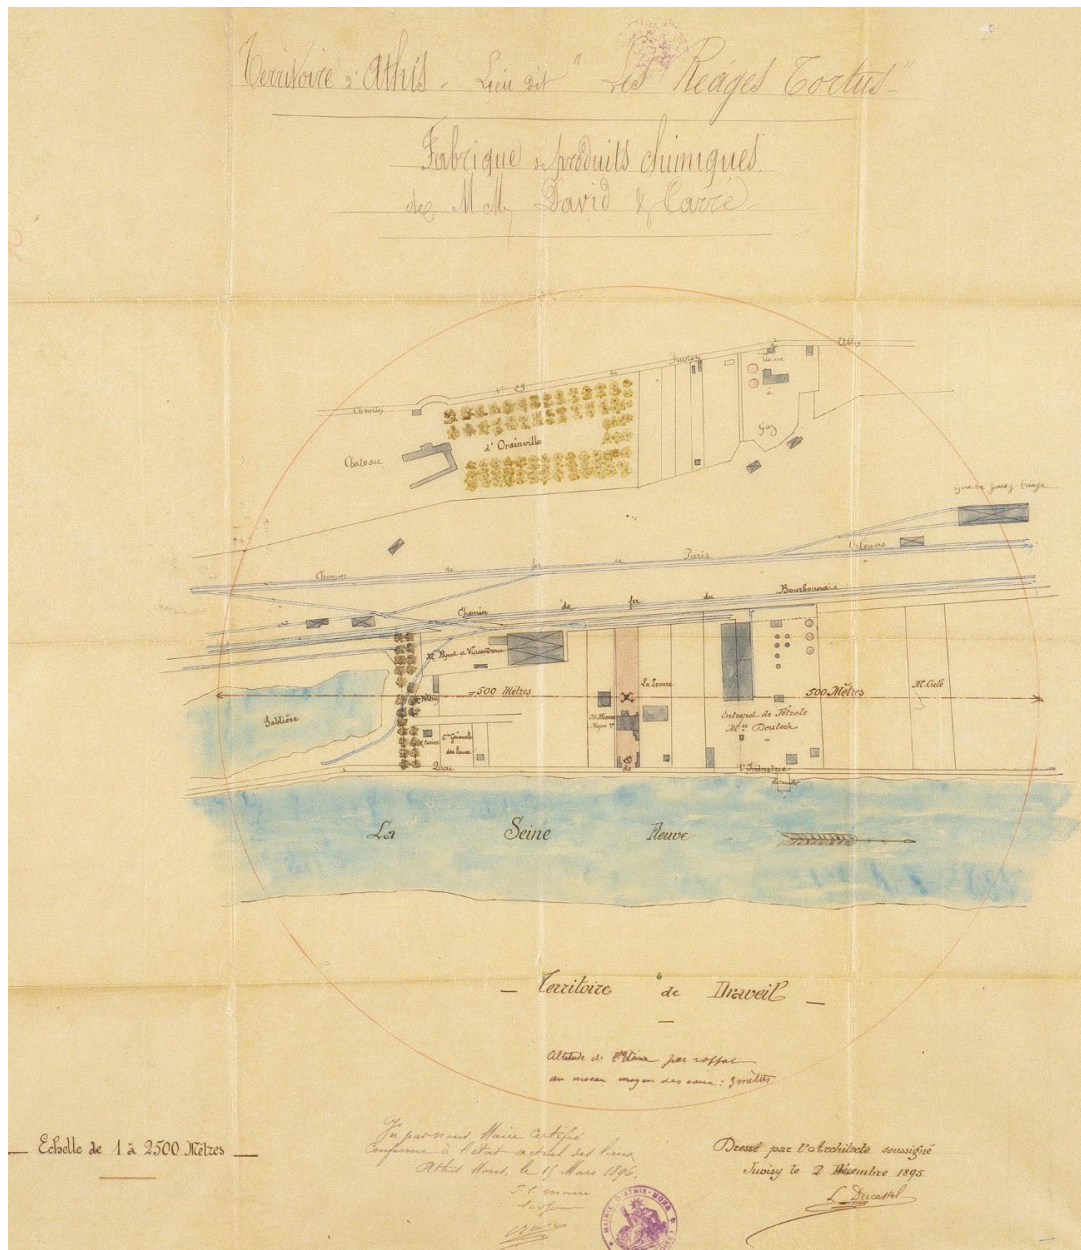 Territoire d'Athis - Lieu dit "Les Réages Tortus"
Fabrique de produits chimiques
des MM David & Carré
Chemin n° 29 de Juvisy à Athis
Usine à Gaz
Château d'Orainville
Gare de Juvisy triage
Chemin de fer de Paris Orléans
Chemin de fer du Bourbonnais
500 Mètres
500 Mètres
Sablière
Entrepôt de Pétrole
Deutsch
Cie Générale
des Eaux
Quai de l'Industrie
La Seine Fleuve
Territoire de Draveil
Altitude de l'Usine par rapport
au niveau moyen des eaux : 3 mètres
Echelle de 1 à 2500 Mètres
Vu par nous Maire Certifié
Conforme à l'état actuel des lieux
Athis Mons, le 15 Mars 1896,
Le maire
Dressé par l'Architecte soussigné
Juvisy le 2 Décembre 1895
L. Ducastel
MAIRIE D'ATHIS-MONS